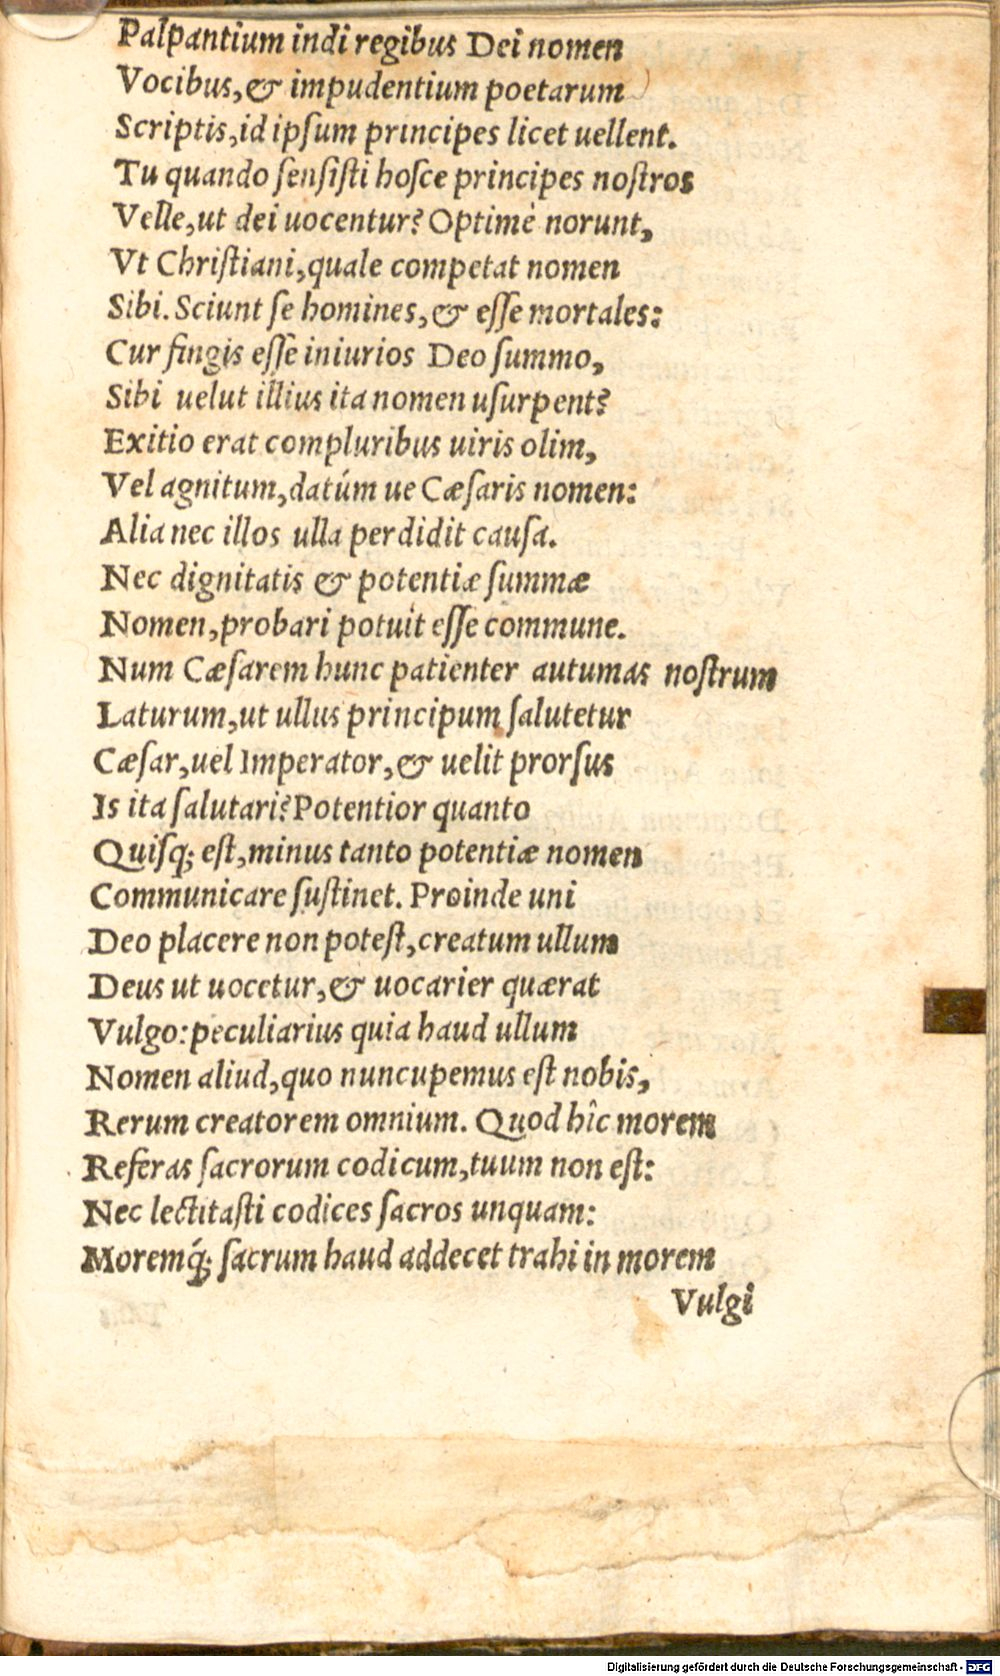 Palpantium indi regibus Dei nomen
Vocibus, & impudentium poetarum
Scriptis, id ipſum principes licet uellent.
Tu quando ſenſiſti hoſce principes noſtros
Velle, ut dei uocentur? Optimè norunt,
Vt Chriſtiani, quale competat nomen
Sibi. Sciunt ſe homines, & eſſe mortales:
Cur fingis eſſe iniurios Deo ſummo,
Sibi uelut illius ita nomen uſurpent?
Exitio erat compluribus uiris olim,
Vel agnitum, datúm ue Cæſaris nomen:
Alia nec illos ulla perdidit cauſa.
Nec dignitatis & potentiæ ſummæ
Nomen, probari potuit eſſe commune.
Num Cæſarem hunc patienter autumas noſtrum
Laturum, ut ullus principum ſalutetur
Cæſar, uel Imperator, & uelit prorſus
Is ita ſalutari? Potentior quanto
Quiſq; eſt, minus tanto potentiæ nomen
Communicare ſuſtinet. Proinde uni
Deo placere non poteſt, creatum ullum
Deus ut uocetur, & uocarier quærat
Vulgo: peculiarius quia haud ullum
Nomen aliud, quo nuncupemus eſt nobis,
Rerum creatorem omnium. Quod hîc morem
Referas ſacrorum codicum, tuum non eſt:
Nec lectitaſti codices ſacros unquam:
Moremq́; ſacrum haud addecet trahi in morem
Vulgi
Digitalisierung gefördert durch die Deutsche Forschungsgemeinschaft - DFG